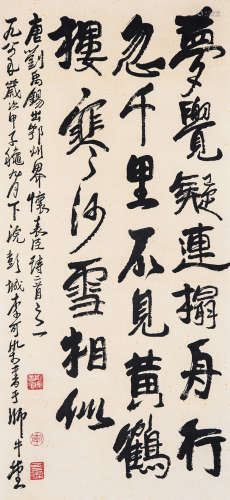 夢覺疑連榻舟行
忽千里不見黃鶴
樓寒沙雪相似
唐劉禹錫出鄂州界懷表臣詩二首之一
九八四年歲次甲子穐九月下浣彭城李可染書于師牛堂